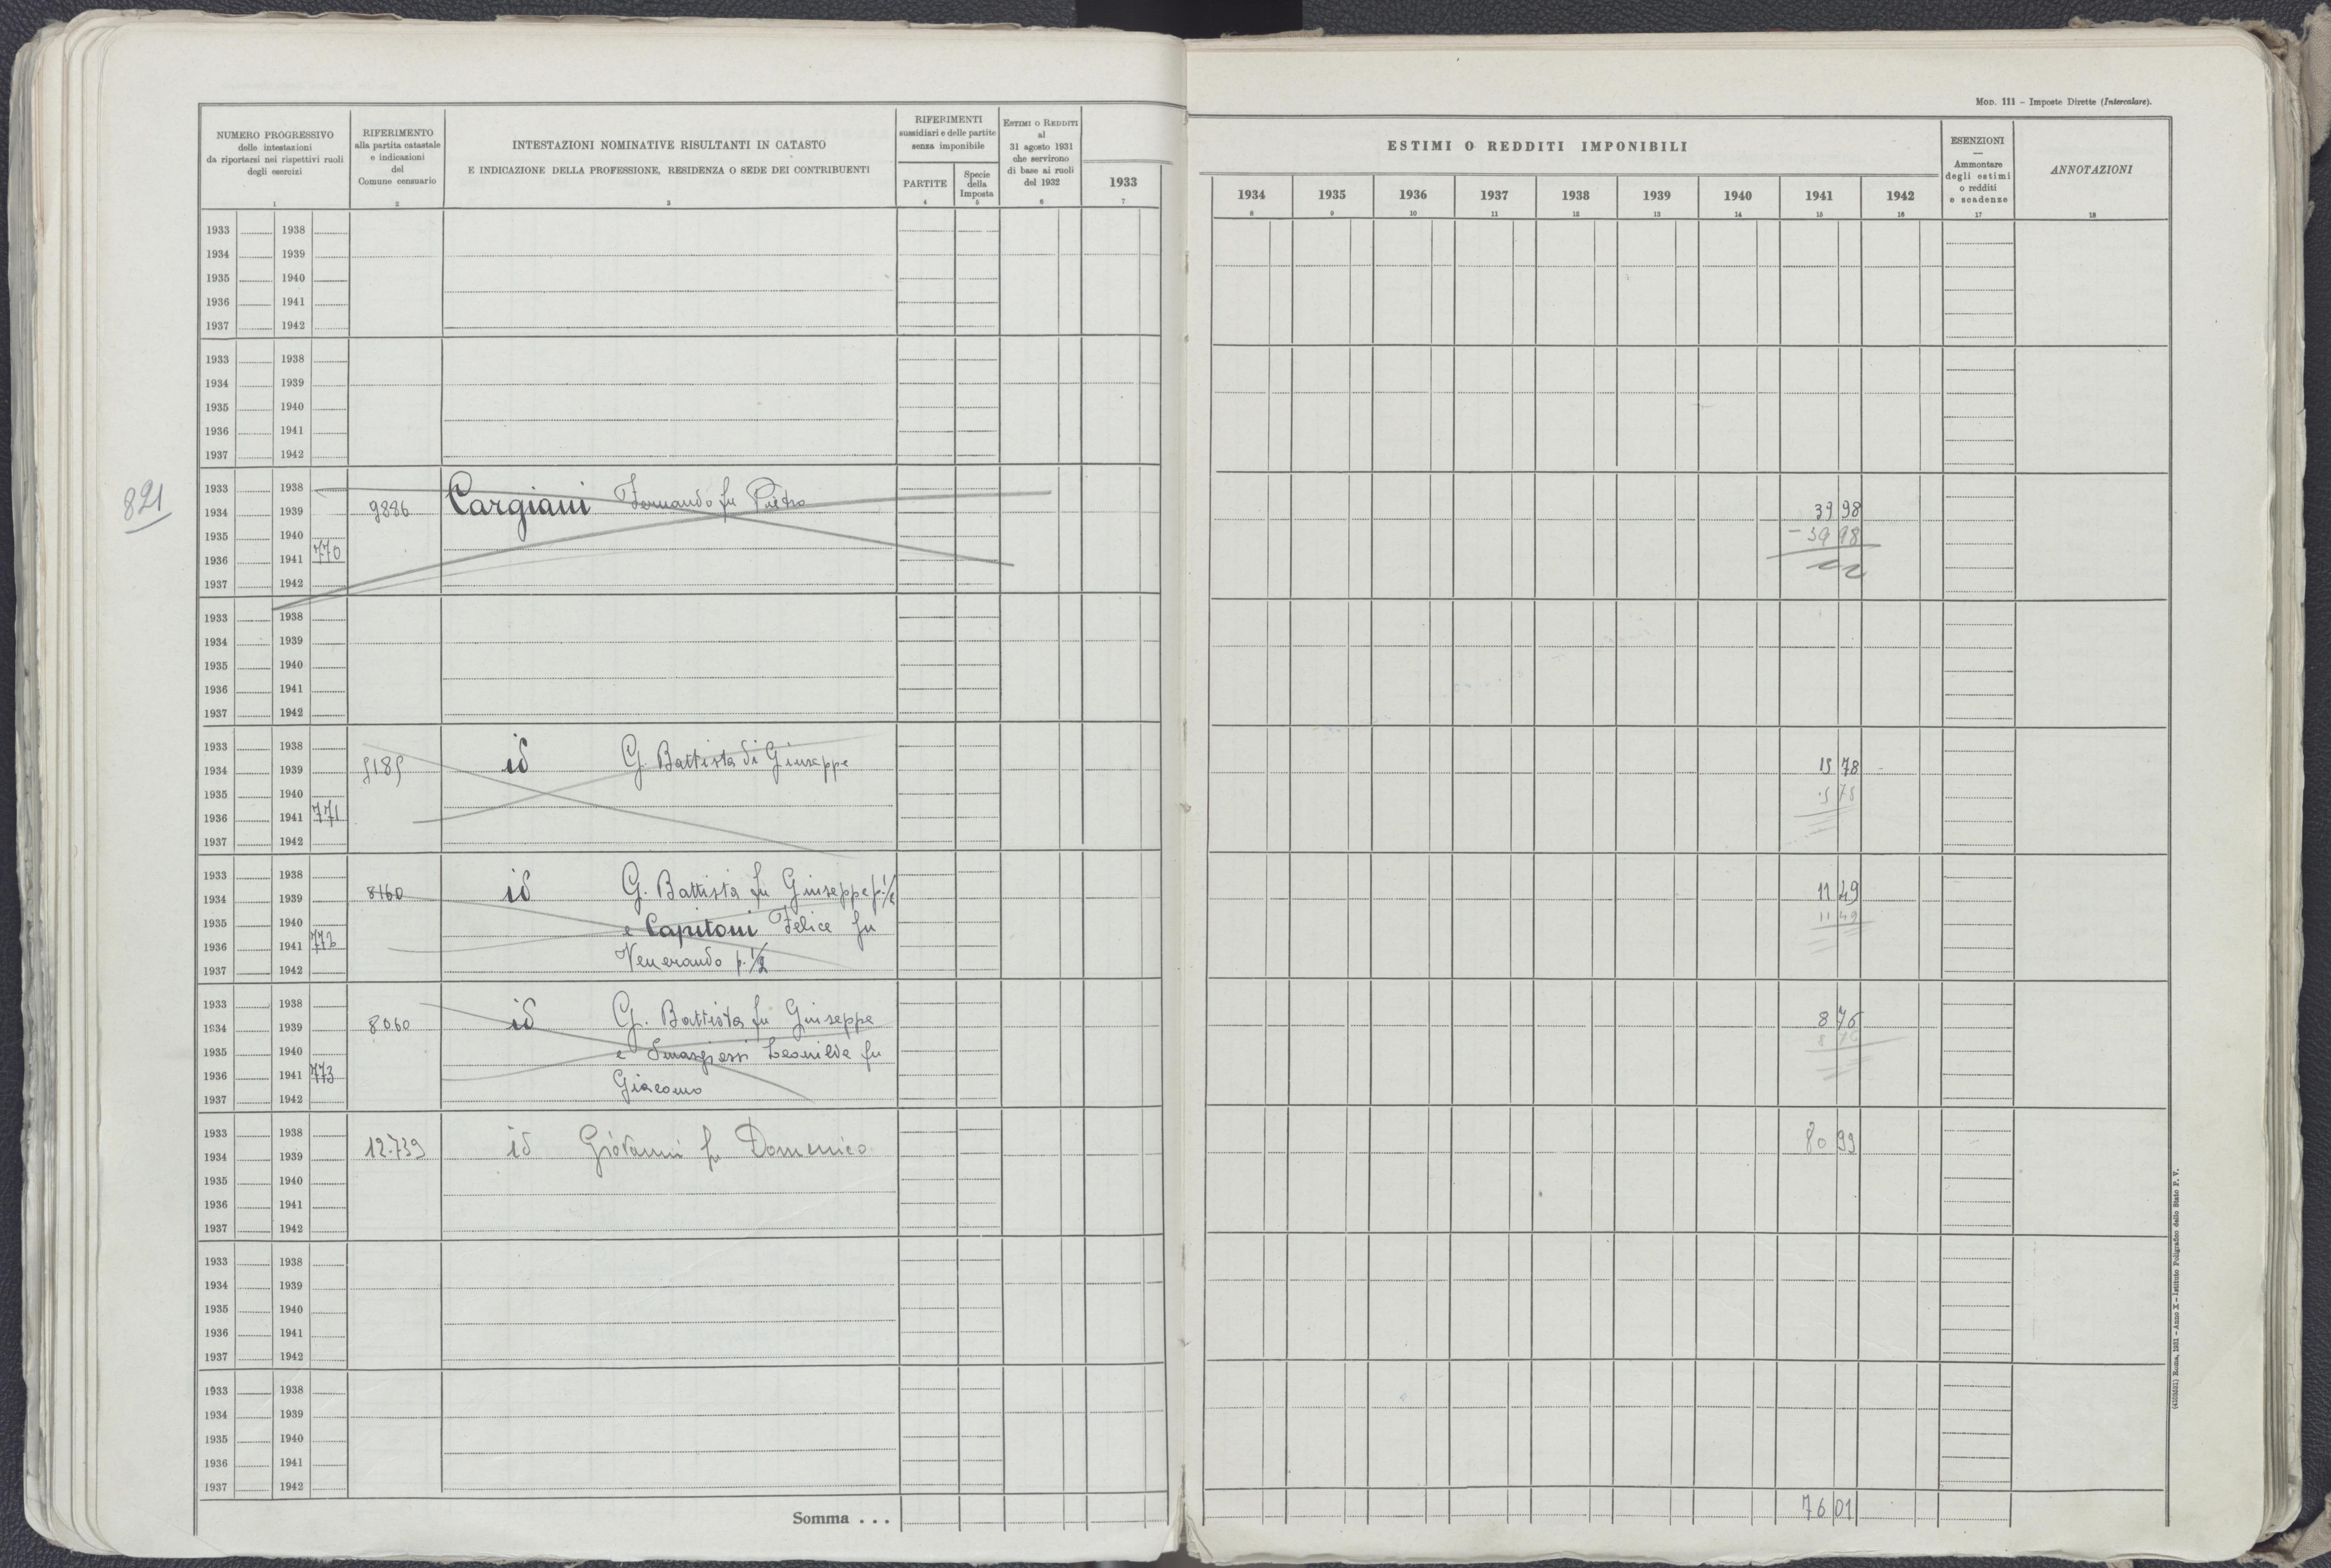 Mod. 111 – Imposte Dirette (Intercalare).
NUMERO PROGRESSIVO
delle intestazioni
da riportarsi nei rispettivi ruoli
degli esercizi
1
RIFERIMENTO
alla partita catastale
e indicazioni
del
Comune censuario
2
INTESTAZIONI NOMINATIVE RISULTANTI IN CATASTO
E INDICAZIONE DELLA PROFESSIONE, RESIDENZA O SEDE DEI CONTRIBUENTI
3
RIFERIMENTI
sussidiari e delle partite
senza imponibile
PARTITE
4
Specie
della
Imposta
5
Estimi o Redditi
al
31 agosto 1931
che servirono
di base ai ruoli
del 1932
6
ESTIMI O REDDITI IMPONIBILI
1933 1934 1935 1936 1937 1938 1939 1940 1941 1942
7 8 9 10 11 12 13 14 15 16
ESENZIONI
—
Ammontare
degli estimi
o redditi
e scadenze
17
ANNOTAZIONI
18
1933 1938
1934 1939
1935 1940
1936 1941
1937 1942
1933 1938
1934 1939
1935 1940
1936 1941
1937 1942
821
1933 1938
1934 1939 9886 Cargiani Fernando fu Pietro 39 98
1935 1940 – 39 98
1936 1941 770
1937 1942
1933 1938
1934 1939
1935 1940
1936 1941
1937 1942
1933 1938
1934 1939 id G. Battista di Giuseppe 15 78
1935 1940
1936 1941 771
1937 1942
1933 1938
1934 1939 8160 id G. Battista fu Giuseppe p. 1/2 11 49
1935 1940 e Capitoni Felice fu 11 49
1936 1941 772
1937 1942 Venerando p. 1/2
1933 1938
1934 1939 8060 id G. Battista fu Giuseppe 8 76
1935 1940 e Smargiassi Leonilde fu 8 76
1936 1941 773
1937 1942 Giacomo
1933 1938
1934 1939 12.739 id Giovanni fu Domenico 80 99
1935 1940
1936 1941
1937 1942
1933 1938
1934 1939
1935 1940
1936 1941
1937 1942
1933 1938
1934 1939
1935 1940
1936 1941
1937 1942
Somma . . . 76 01
(4103581) Roma, 1931 – Anno X – Istituto Poligrafico dello Stato P. V.